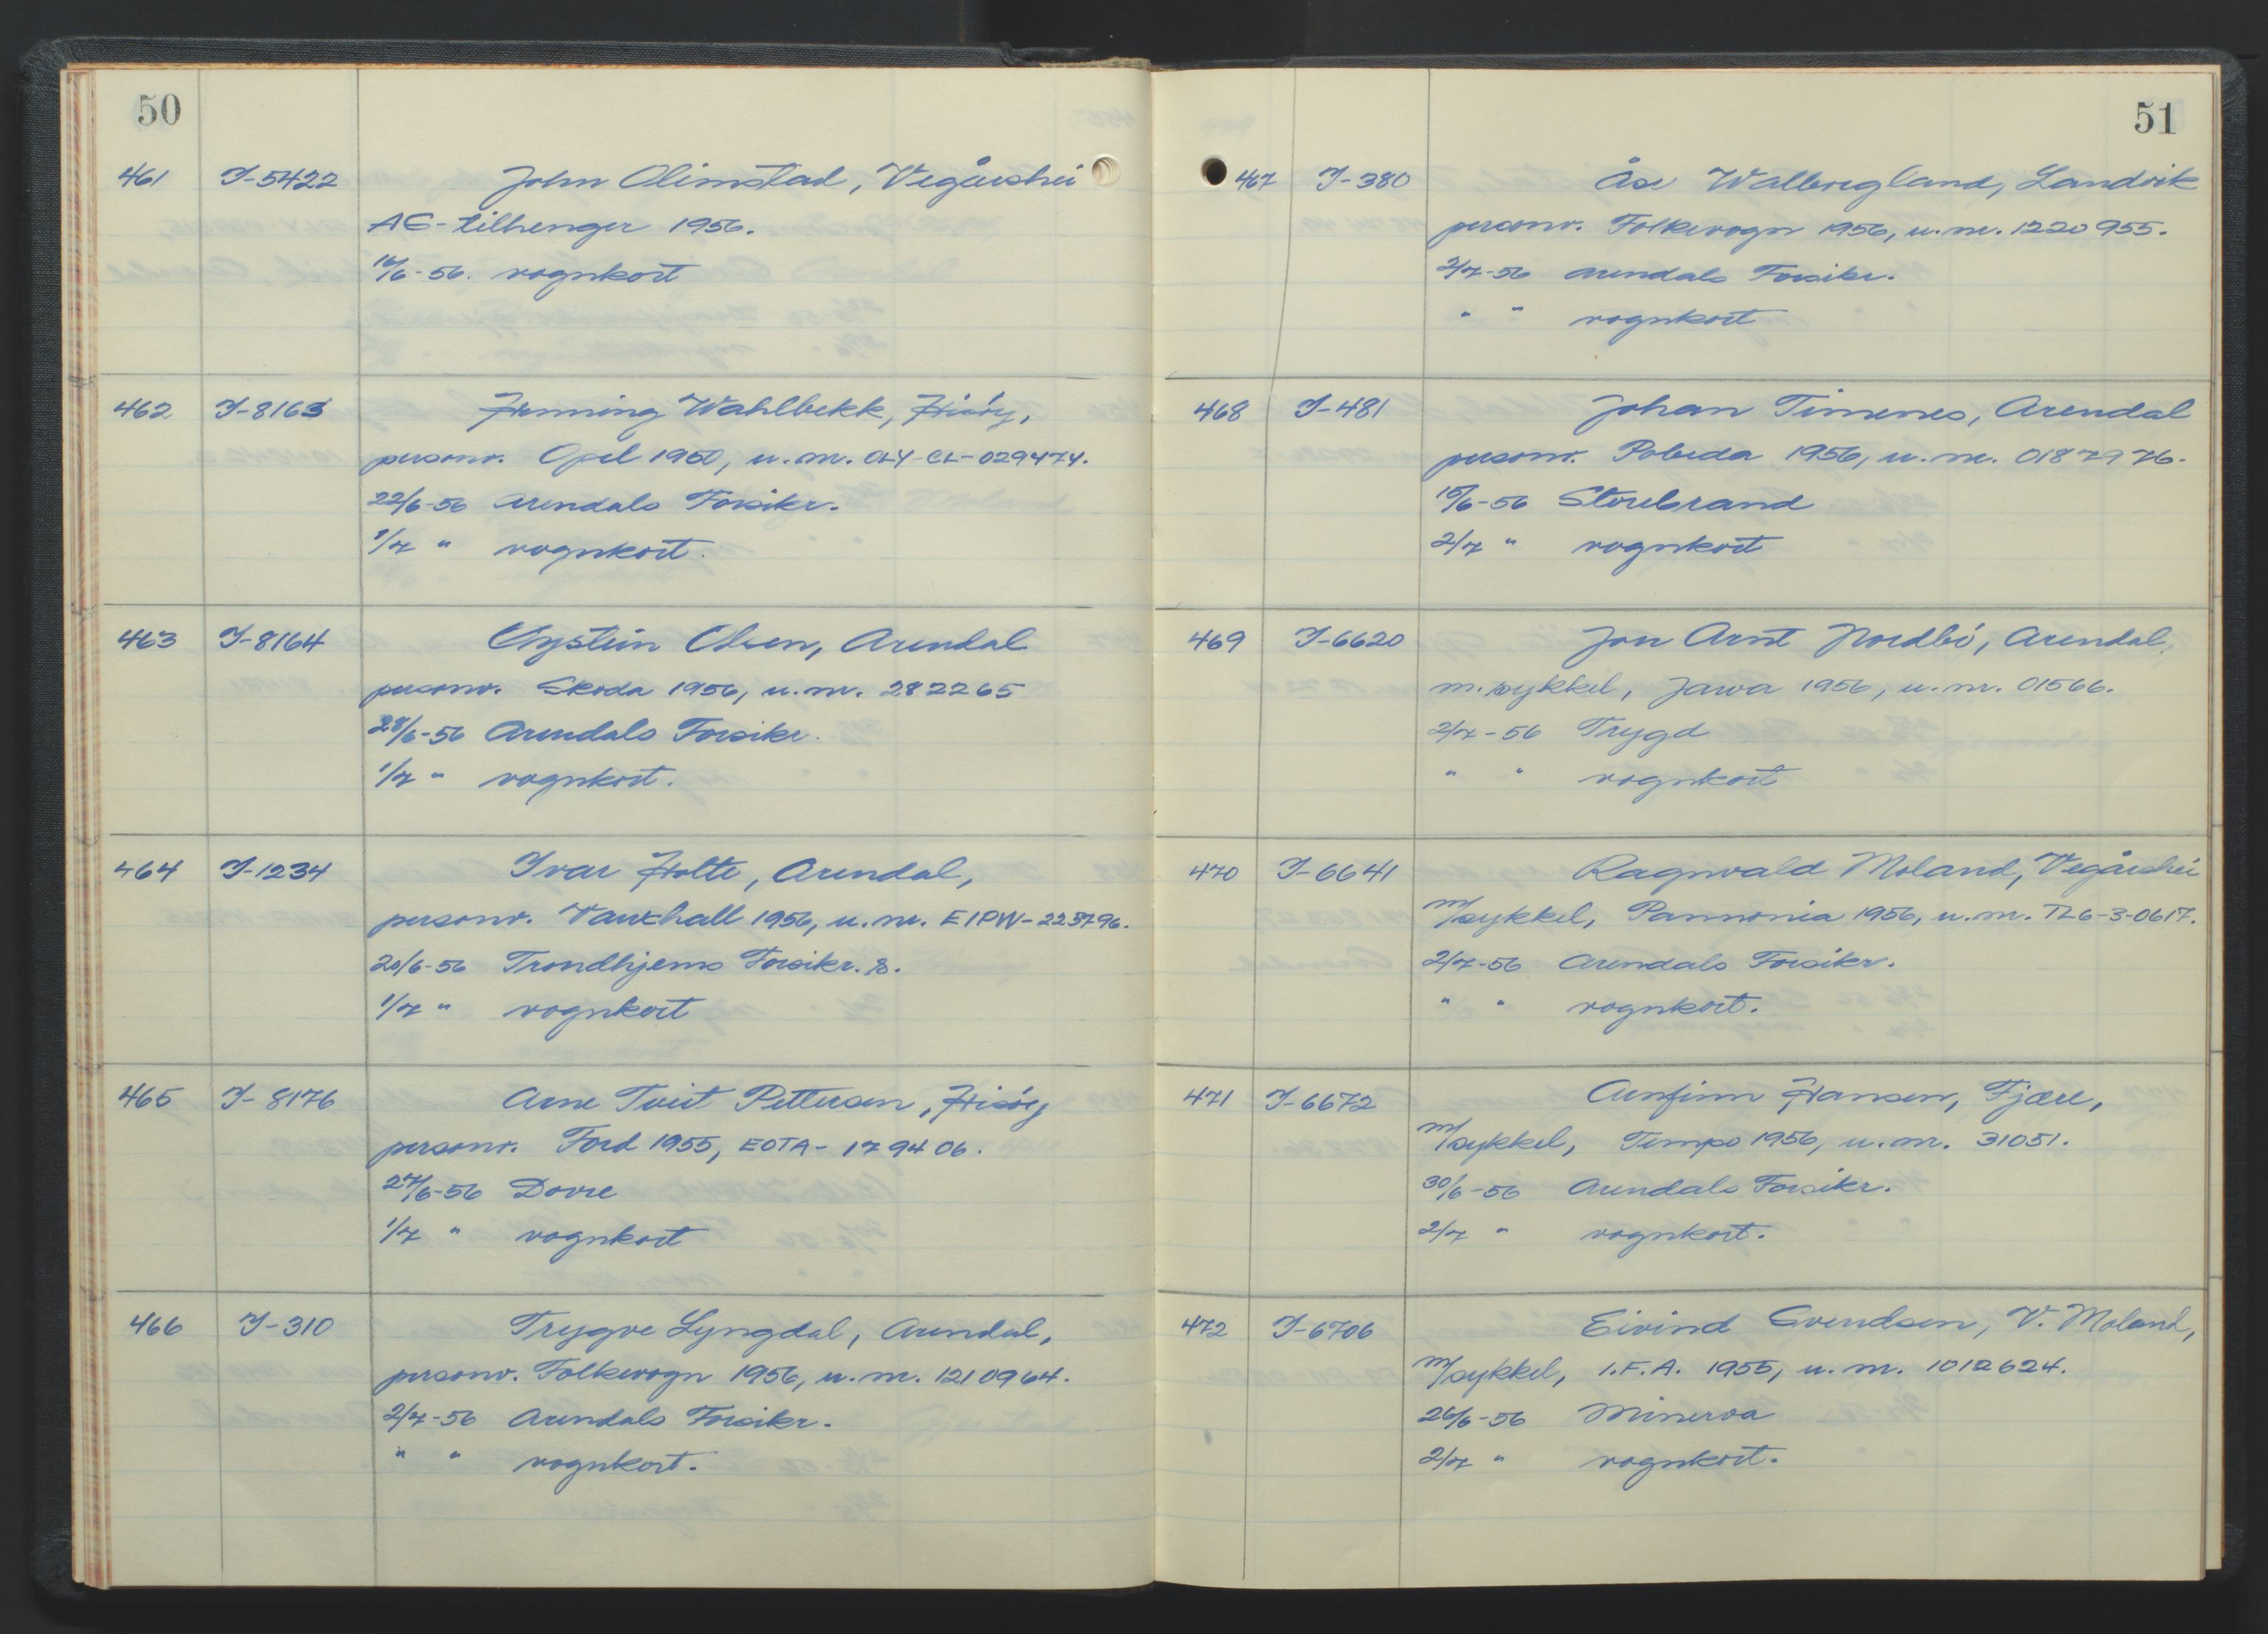 50
461 I-5422 John Olimstad, Vegårshei
AE-tilhenger 1956.
16/6-56. vognkort
462 I-8163 Henning Wahlbekk, Hisøy,
personv. Opel 1950, u.nr. OLY-CL-029474.
22/6-56 Arendals Forsikr.
1/7 " vognkort.
463 I-8164 Øystein Olsen, Arendal
personv. Skoda 1956, u.nr. 282265
28/6-56 Arendals Forsikr.
1/7 " vognkort.
464 I-1234 Ivar Holte, Arendal,
personv. Vauxhall 1956, u.nr. EIPW-223796.
20/6-56 Trondhjems Forsikr. s.
1/7 " vognkort
465 I-8176 Arne Tveit Pettersen, Hisøy
personv. Ford 1955, EOTA-179406.
27/6-56 Dovre
1/7 " vognkort
466 I-310 Trygve Lyngdal, Arendal,
personv. Folkevogn 1956, u.nr. 1210964.
2/7-56 Arendals Forsikr.
" " vognkort.
51
467 I-380 Åse Landvik
personv. Folkevogn 1956, u.nr. 1220955.
2/7-56 Arendals Forsikr.
" " vognkort
468 I-481 Johan Timenes, Arendal
personv. Pobeda 1956, u.nr. 0187976.
15/6-56 Storebrand
2/7 " vognkort
469 I-6620 Jon Arnt Nordbö, Arendal,
m.sykkel, Jawa 1956, u.nr. 01566.
2/7-56 Trygd
" " vognkort
470 I-6641 Ragnvald Moland, Vegårshei
m/sykkel, Pannonia 1956, u.nr. TL6-3-0617.
2/7-56 Arendals Forsikr.
" " vognkort.
471 I-6672 Arnfinn Hansen, Fjære,
m/sykkel, Tempo 1956, u.nr. 31051.
30/6-56 Arendals Forsikr.
2/7 " vognkort.
472 I-6706 Eivind Svendsen, V. Moland,
m/sykkel, I.F.A. 1955, u.nr. 1012624.
26/6-56 Minerva
2/7 " vognkort.